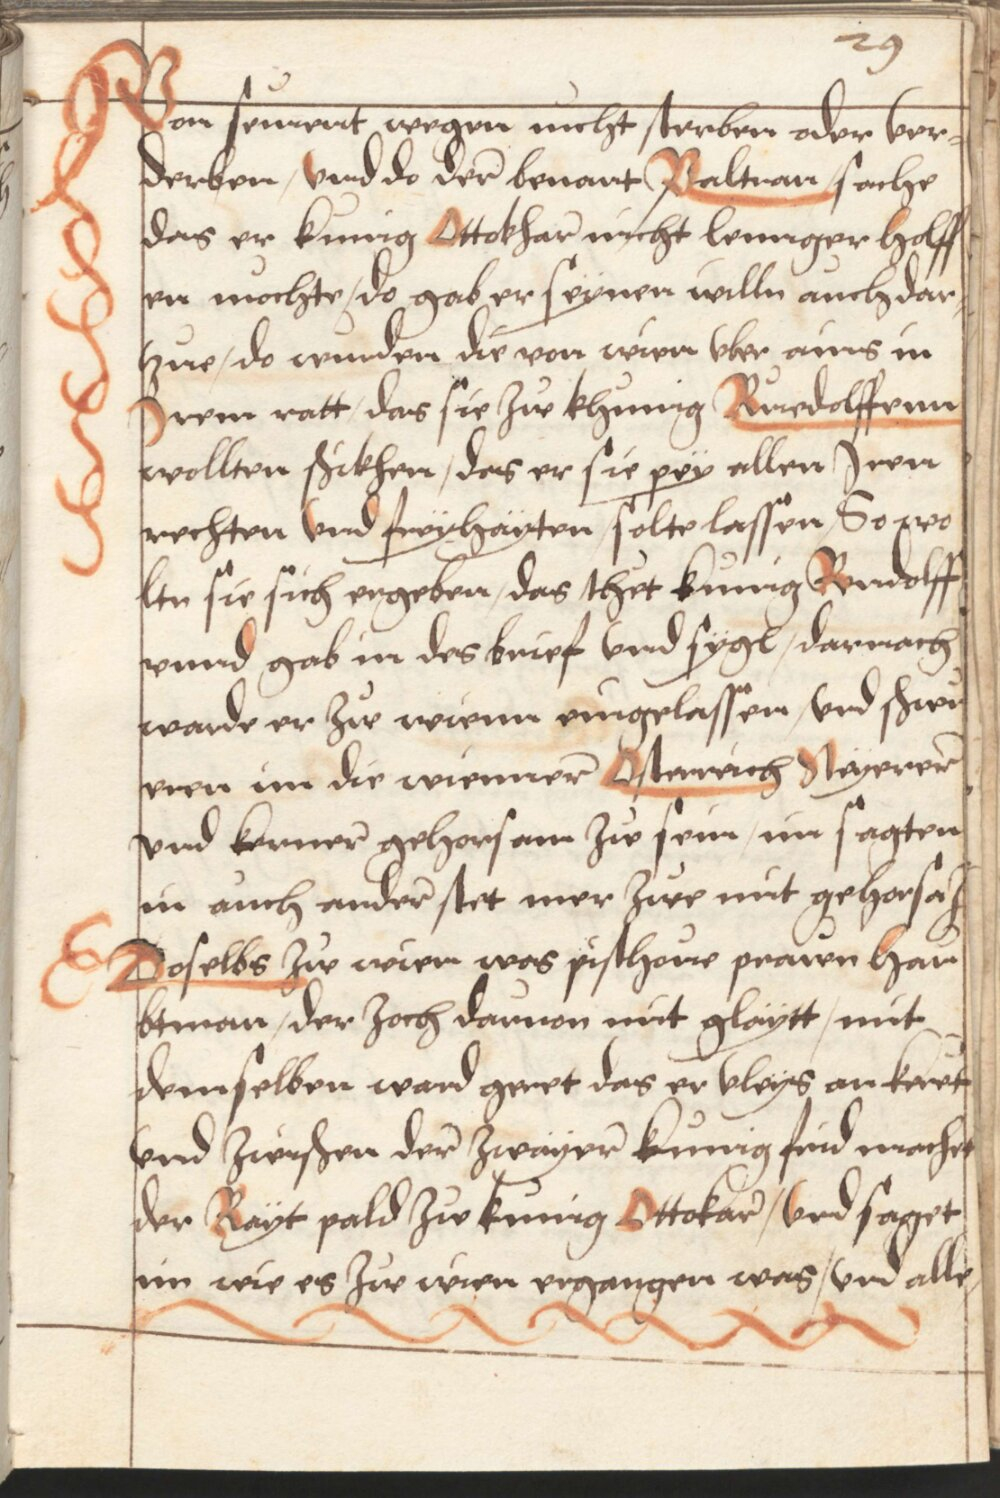 29
Von seinent wegen nicht sterben oder ver-
derben / vnd do der benant Paltram sache
das er kunig Ottokhar nicht lennger holff
en mochte / do gab er seynen willn auch dar
zue / do wurden die von wien vber ains in
Irem ratt / das sie zw khunig Ruedolffenn
wollten schikhen / das er sie pey allen Iren
rechten vnd freyhayten solte lassen / So wo
ltn sie sich ergeben / das thet kunig Rudolff
vnnd gab in des brief vnd sygl / darnach
warde er zw wienn eingelassen / vnd schwu
eren im die wienner Osterreich Steyerer
vnd kerner gehorsam zw sein / im sagten
in auch ander stet mer zwe mit gehorsam
Doselbs zw wien was pischoue prawn hau
btman / der zoch daruon mit glaytt / mit
demselben ward geret das er vleys an kert
vnd zwischen der zwayer kunig frid machet
der Rayt pald zw kunig Ottokar / vnd saget
im wie es zw wien ergangen was / vnd alle